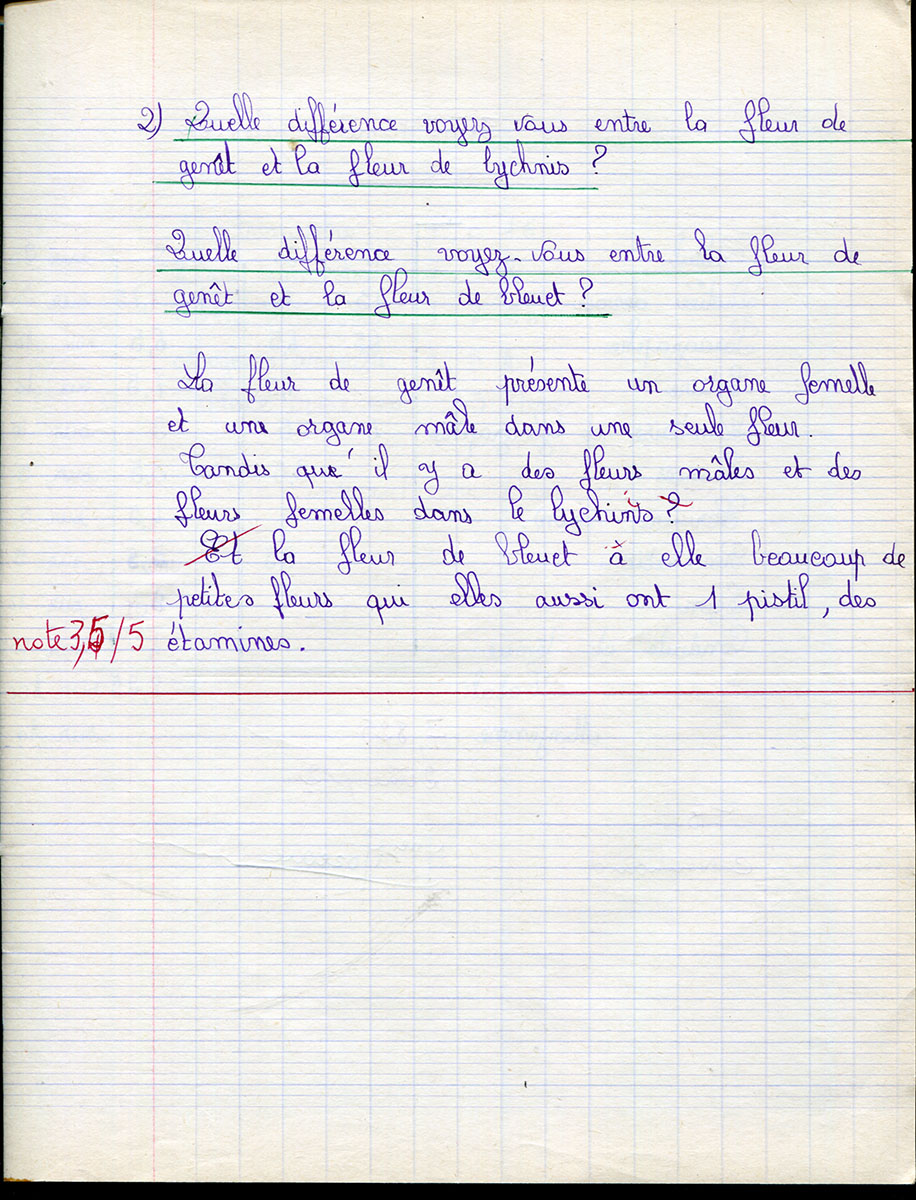 2) Quelle différence voyez vous entre la fleur de
genêt et la fleur de lychnis ?
Quelle différence voyez-vous entre la fleur de
genêt et la fleur de bleuet ?
La fleur de genêt présente un organe femelle
et une organe mâle dans une seule fleur.
Tandis que il y a des fleurs mâles et des
fleurs femelles dans le lychinis ?
Et la fleur de bleuet à elle beaucoup de
petites fleurs qui elles aussi ont 1 pistil, des
note 3,5/5 étamines.